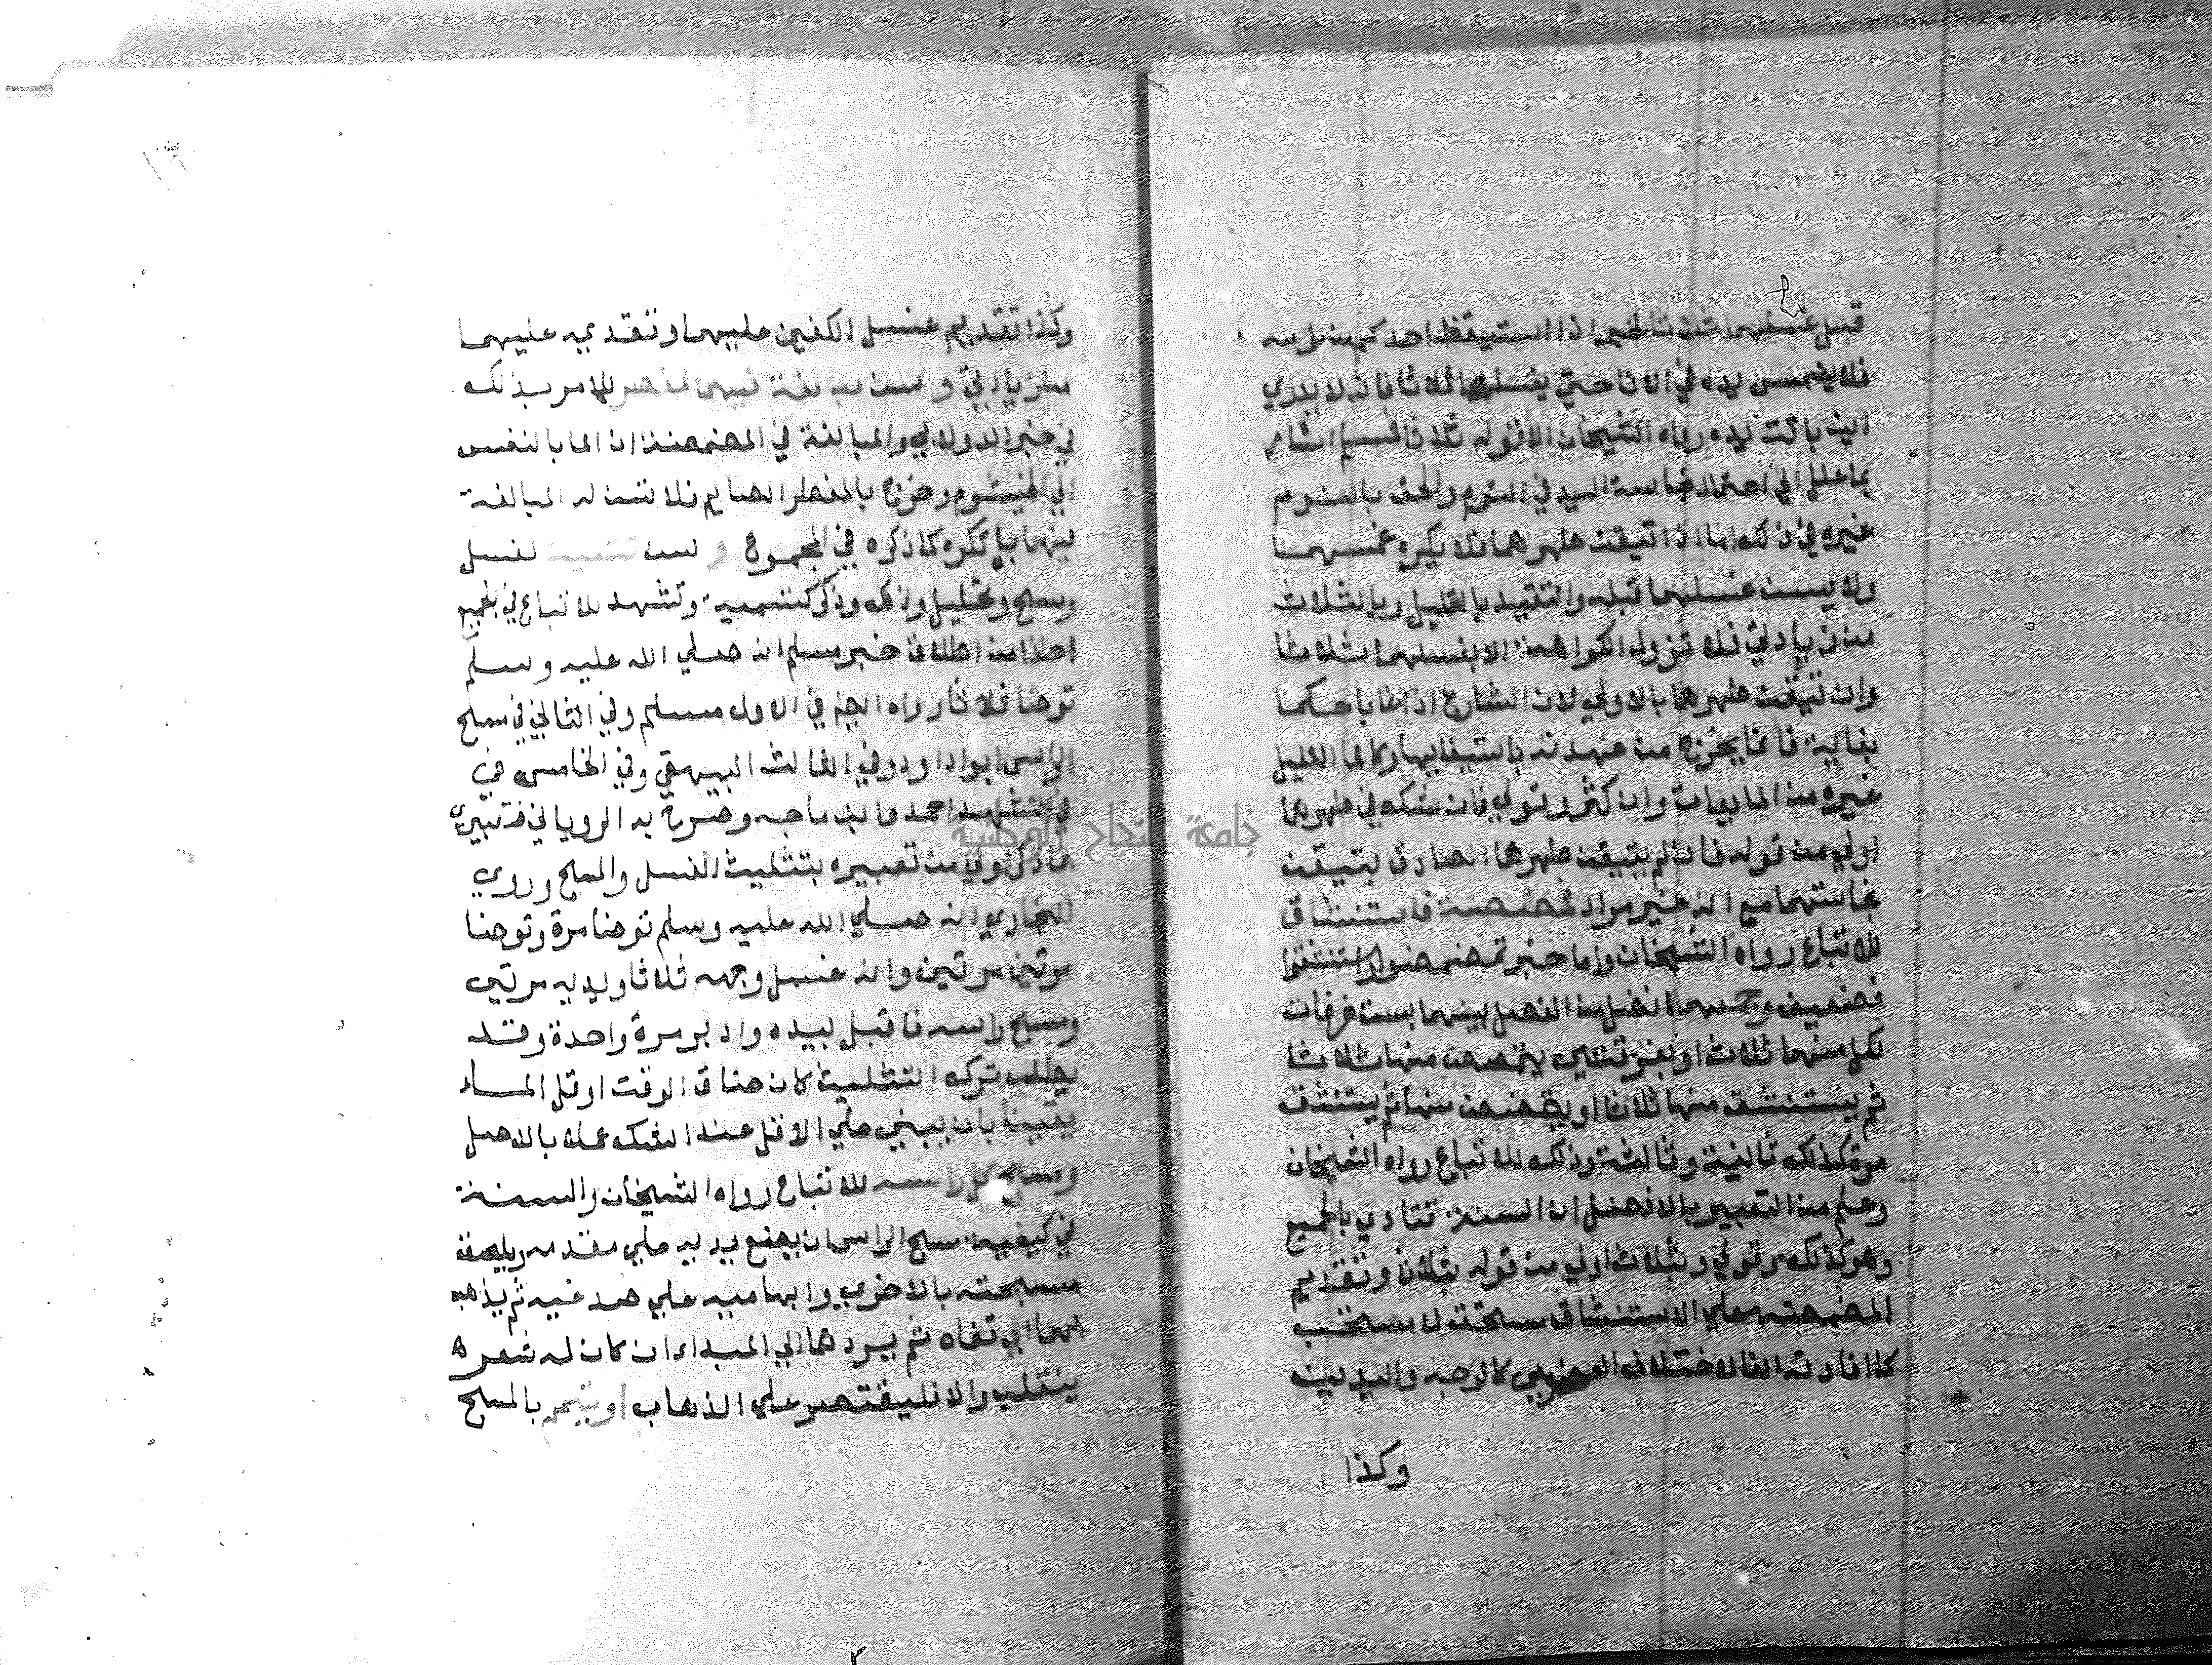 قبل غسلهما ثلاثا لخبر اذا استيقظ احدكم من نومه
فلا يغمس يده في الانا حتي يغسلها ثلاثا فانه لا يدري
اين باتت يده رواه الشيخان الا قوله ثلاثا فمسلم اشار
بما علل الي احتمال نجاسة اليد في النوم والحق بالنوم
غيره في ذلك اما اذا تيقن طهرهما فلا يكره غمسهما
ولا يسن غسلهما قبله والتقييد بالقليل وبالثلاث
من زيادتي فلا تزول الكراهة الا بغسلهما ثلاثا
وان تيقن طهرهما بالاولي لان الشارع اذا غيا حكما
بغاية فانما يخرج من عهدته باستيفايها وكالما القليل
غيره من المايعات وان كثر وقولي فان شك في طهرهما
اولي من قوله فان لم يتيقن طهرهما الصادق بتيقن
نجاستهما مع انه غير مراد فمضمضة فاستنشاق
للاتباع رواه الشيخان واما خبر تمضمضوا واستنشقوا
فضعيف وجمعهما افضل من الفصل بينهما بست غرفات
لكل منهما ثلاث او بغرفتين يتمضمض منها ثلاثا
ثم يستنشق منها ثلاثا او يتمضمض منها ثم يستنشق
مرة كذلك ثانية وثالثة وذلك للاتباع رواه الشيخان
وعلم من التعبير بالافضل ان السنة تتادي بالجميع
وهو كذلك وقولي وبثلاث اولي من قوله بثلاث وتقديم
المضمضة علي الاستنشاق مستحق لا مستحب
كما افادته الفا لاختلاف العضوين كالوجه واليدين
وكذا
وكذا تقديم غسل الكفين عليهما وتقديمه عليهما
من زيادتي و سن مبالغة فيهما لمفطر للامر بذلك
في خبر الدولابي والمبالغة في المضمضة ان الما بالنفس
الي الخيشوم وخرج بالمفطر الصايم فلا تسن له المبالغة
فيهما بل تكره كما ذكره في المجموع و سن تثليث لغسل
ومسح وتخليل ودلك وذكر كتسمية وتشهد للاتباع في الجميع
اخذا من اطلاق خبر مسلم انه صلي الله عليه وسلم
توضا ثلاثا رواه ايضا في الاول مسلم وفي الثاني في مسح
الراس ابوا داود وفي الثالث البيهقي وفي الخامس في
في التشهد احمد وابن ماجه وصرح به الروياني فتعبيري
بما ذكر اولي من تعبيره بتثليث الغسل والمسح وروي
البخاري انه صلي الله عليه وسلم توضا مرة وتوضا
مرتين مرتين وانه غسل وجهه ثلاثا ويديه مرتين
ومسح راسه فاقبل بيده وادبر مرة واحدة وقد
يطلب ترك التثليث كان ضاق الوقت او قل الماء
يقينا بان يبني علي الاقل عند الشك عملا بالاصل
ومسح كل راسه للاتباع رواه الشيخان والسنة
في كيفية مسح الراس ان يضع يديه علي مقدمه ويلصق
مسبحته بالاخري وابهاميه علي صدغيه ثم يذهب
بهما الي قفاه ثم يردهما الي المبدا ان كان له شعر
ينقلب والا فليقتصر علي الذهاب او يتمم بالمسح
جامعة النجاح الوطنية